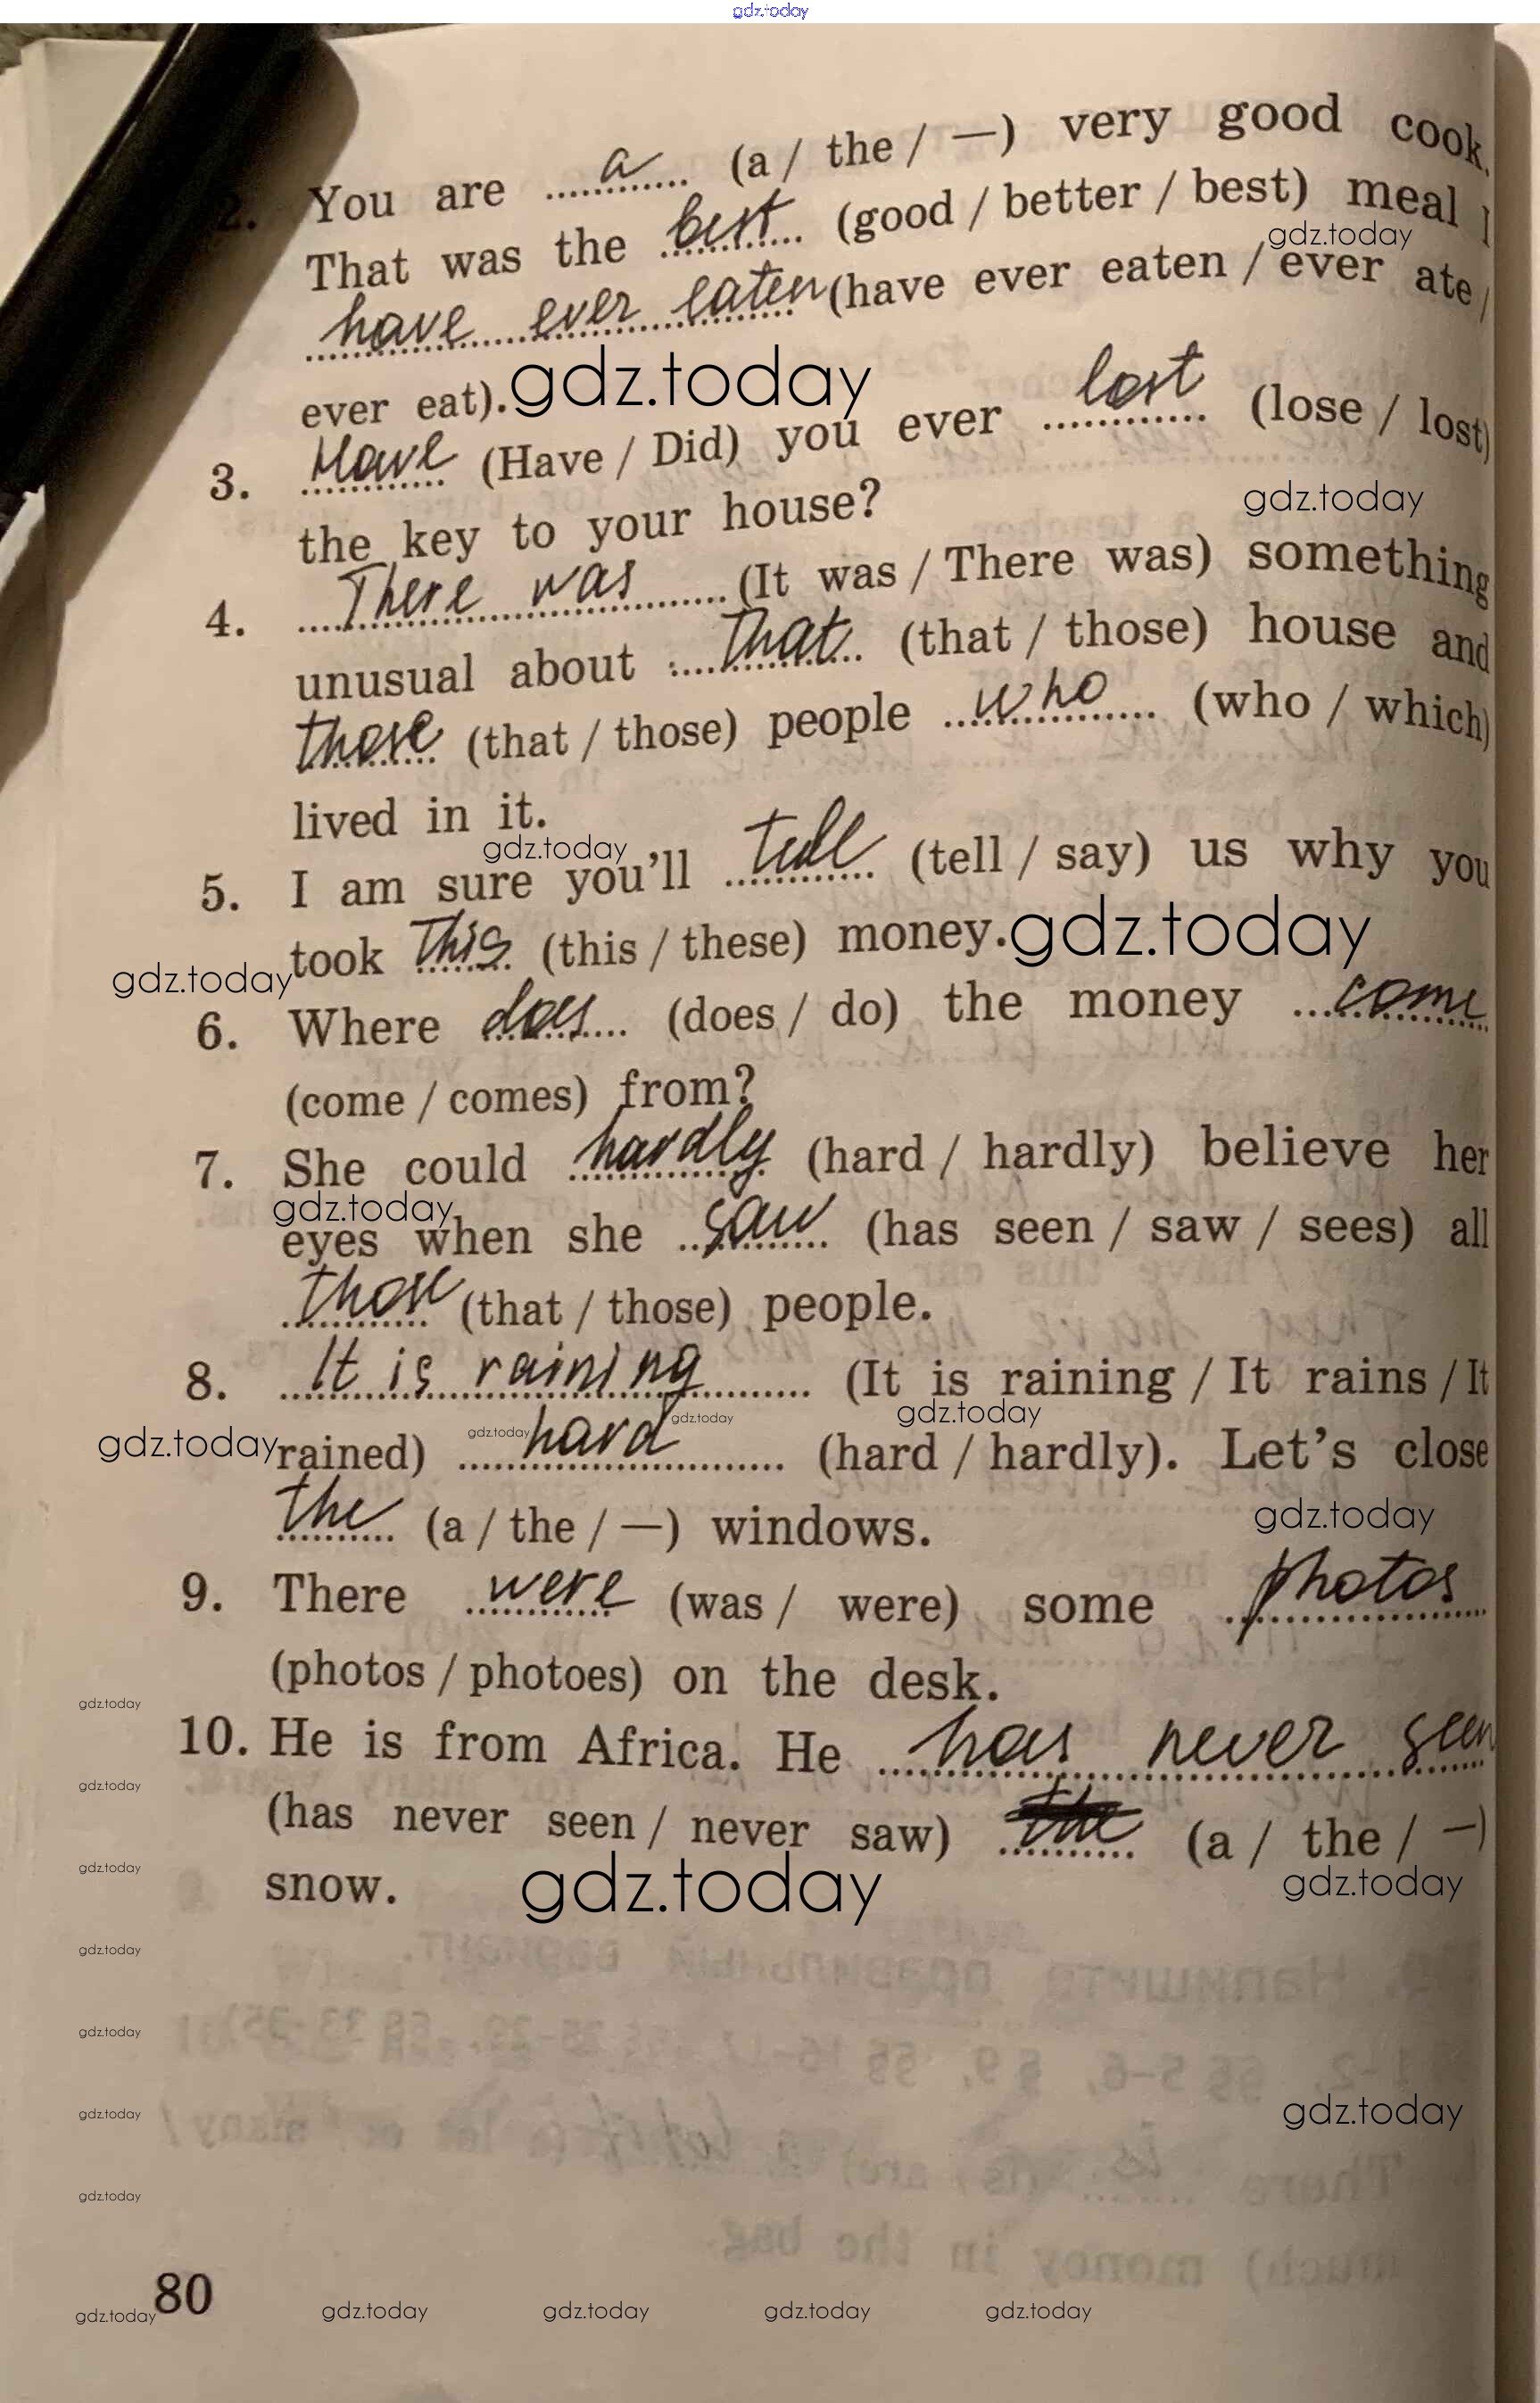 gdz.today
2. You are a (a / the / —) very good cook.
That was the best (good / better / best) meal I
gdz.today
have ever eaten (have ever eaten / ever ate /
ever eat). gdz.today
3. Have (Have / Did) you ever lost (lose / lost)
the key to your house?
gdz.today
4. There was (It was / There was) something
unusual about that (that / those) house and
those (that / those) people who (who / which)
lived in it.
gdz.today
5. I am sure you'll tell (tell / say) us why you
took this (this / these) money. gdz.today
gdz.today
6. Where does (does / do) the money come
(come / comes) from?
7. She could hardly (hard / hardly) believe her
gdz.today
eyes when she saw (has seen / saw / sees) all
those (that / those) people.
8. It is raining (It is raining / It rains / It
gdz.today gdz.today gdz.today
gdz.today rained) hard (hard / hardly). Let's close
the (a / the / —) windows.
gdz.today
9. There were (was / were) some photos
(photos / photoes) on the desk.
gdz.today
10. He is from Africa. He has never seen
gdz.today
(has never seen / never saw) the (a / the / —)
gdz.today
snow. gdz.today gdz.today
gdz.today
gdz.today
gdz.today gdz.today
gdz.today
80
gdz.today gdz.today gdz.today gdz.today gdz.today